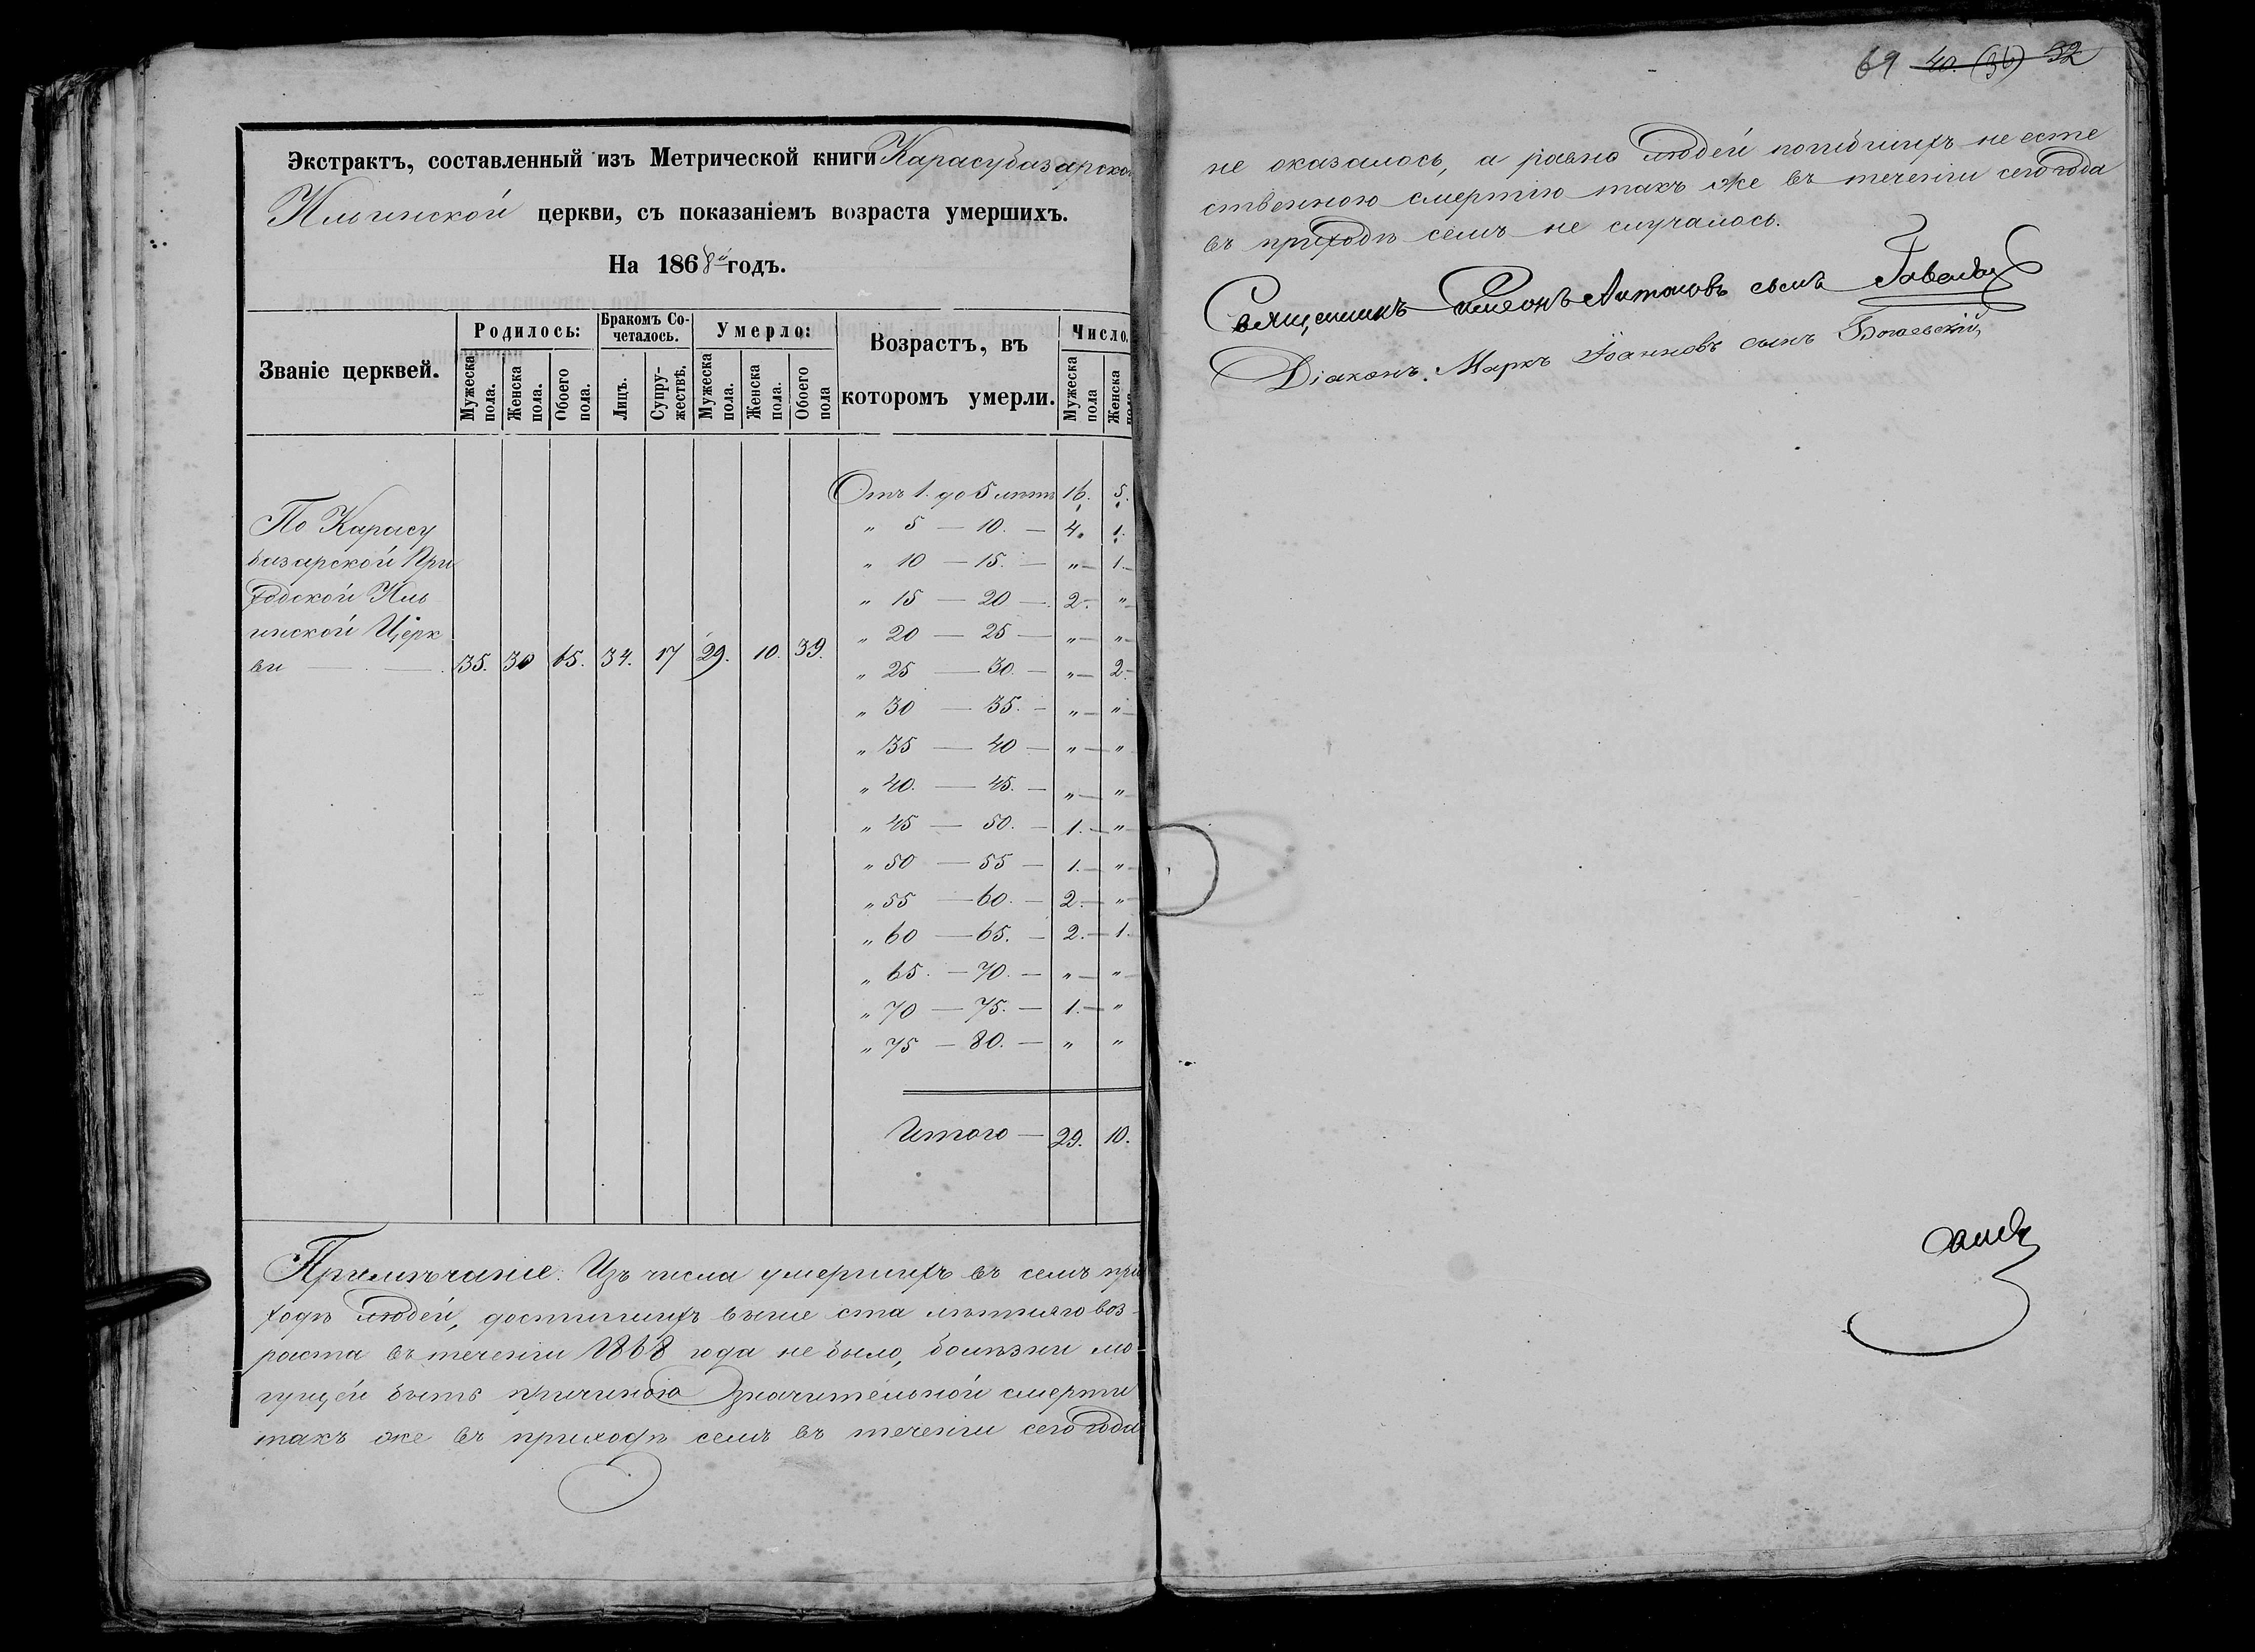 Экстрактъ, составленный изъ Метрической книги Карасубазарской
Ильинской церкви, съ показаніемъ возраста умершихъ.
На 1868й годъ.
Званіе церквей.
Родилось:
Бракомъ Со-
четалось.
Умерло:
Возрастъ, въ
которомъ умерли.
Число.
Мужеска
пола.
Женска
пола.
Обоего
пола.
Лицъ.
Супру-
жествъ.
Мужеска
пола.
Женска
пола.
Обоего
пола
Мужеска
пола
Женска
пола
По Карасу
базарской При
ходской Иль
инской Церк
ви — . — . 35. 30 65. 34. 17 29. 10. 39.
Отъ 1. до 5 лѣтъ 16. 5.
„ 5 — 10. — 4. 1.
„ 10 — 15. — „ — 1. —
„ 15 — 20 — 2. — „
„ 20 — 25 — „ — „
„ 25 — 30. — „ — 2. —
„ 30 — 35. — „ — „
„ 35 — 40 — „ — „
„ 40. — 45. — „ — „
„ 45 — 50. — 1. — „
„ 50 — 55 — 1. — „
„ 55 — 60. — 2. — „
„ 60 — 65. — 2. — 1.
„ 65. — 70. — „ — „
„ 70 — 75. — 1. — „
„ 75 — 80. — „ „
Итого — 29. 10.
Примѣчаніе. Изъ числа умершихъ въ семъ при
ходѣ людей, достигшихъ выше ста лѣтняго воз-
раста въ теченіи 1868 года не было, болѣзни мо-
гущей быть причиною значительной смерти
такъ же въ приходѣ семъ въ теченіи сего года
69 40. (36) 32
не оказалось, а равно людей погибшихъ не есте
ственною смертію такъ же въ теченіи сего года
въ приходѣ семъ не случалось.
Священникъ Симеонъ Антоновъ сынъ
Діаконъ. Маркъ Іоанновъ сынъ Богаевскій